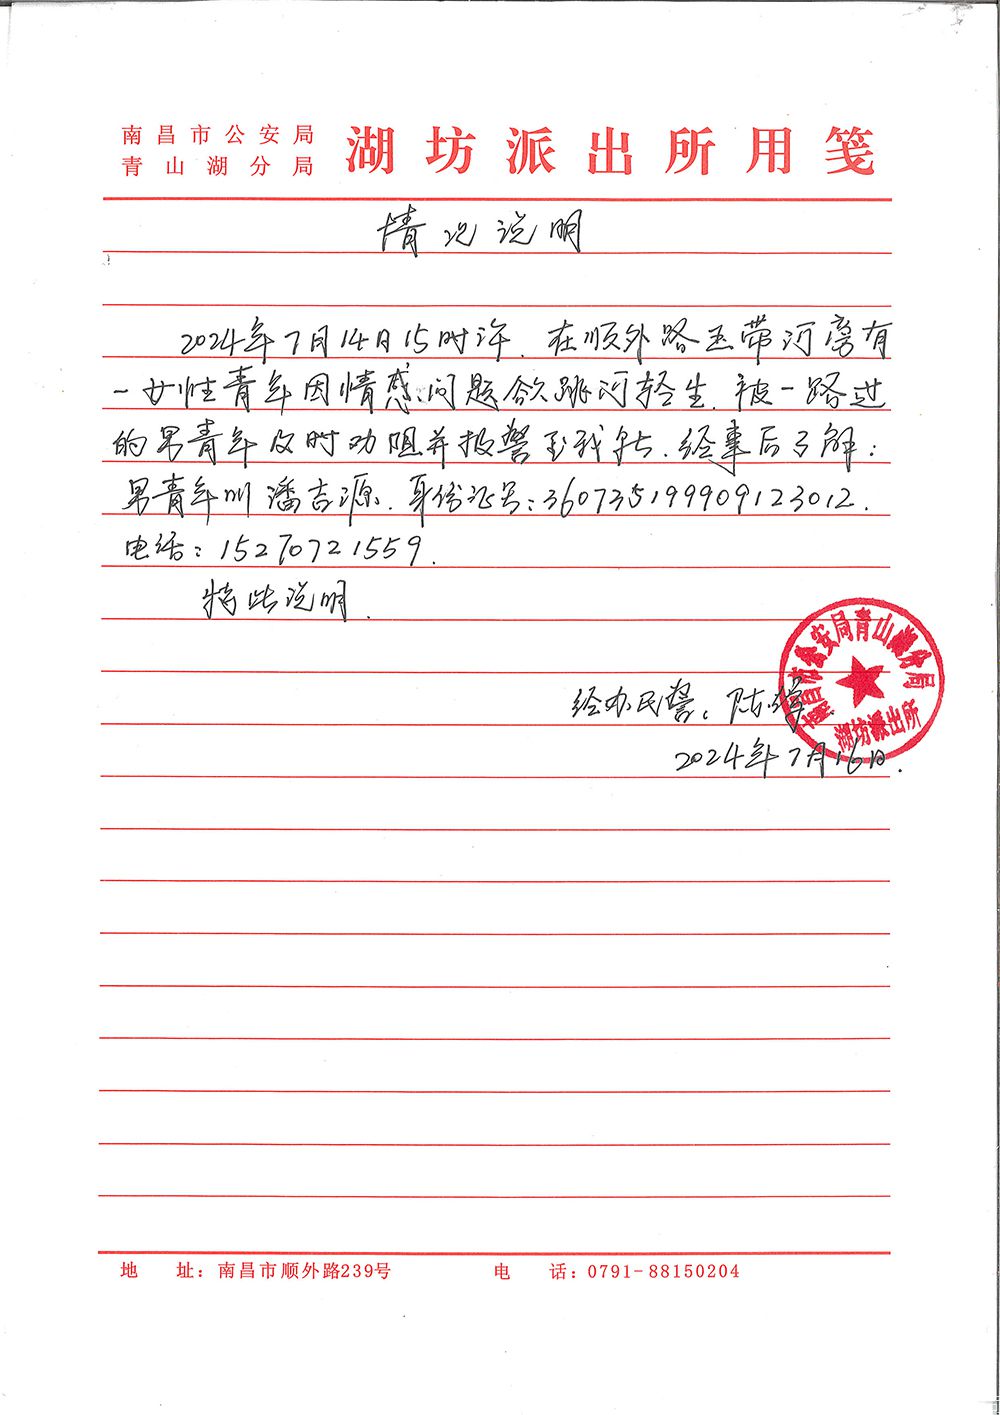 南昌市公安局
青山湖分局
湖坊派出所用笺
情况说明
2024年7月14日15时许，在顺外路玉带河旁有
一女性青年因情感问题欲跳河轻生，被一路过
的男青年及时劝阻并报警至我所，经事后了解：
男青年叫潘吉源，身份证号：360735199909123012，
电话：15270721559.
特此说明.
经办民警：陆
2024年7月16日.
南昌市公安局青山湖分局
湖坊派出所
地 址：南昌市顺外路239号 电 话：0791-88150204